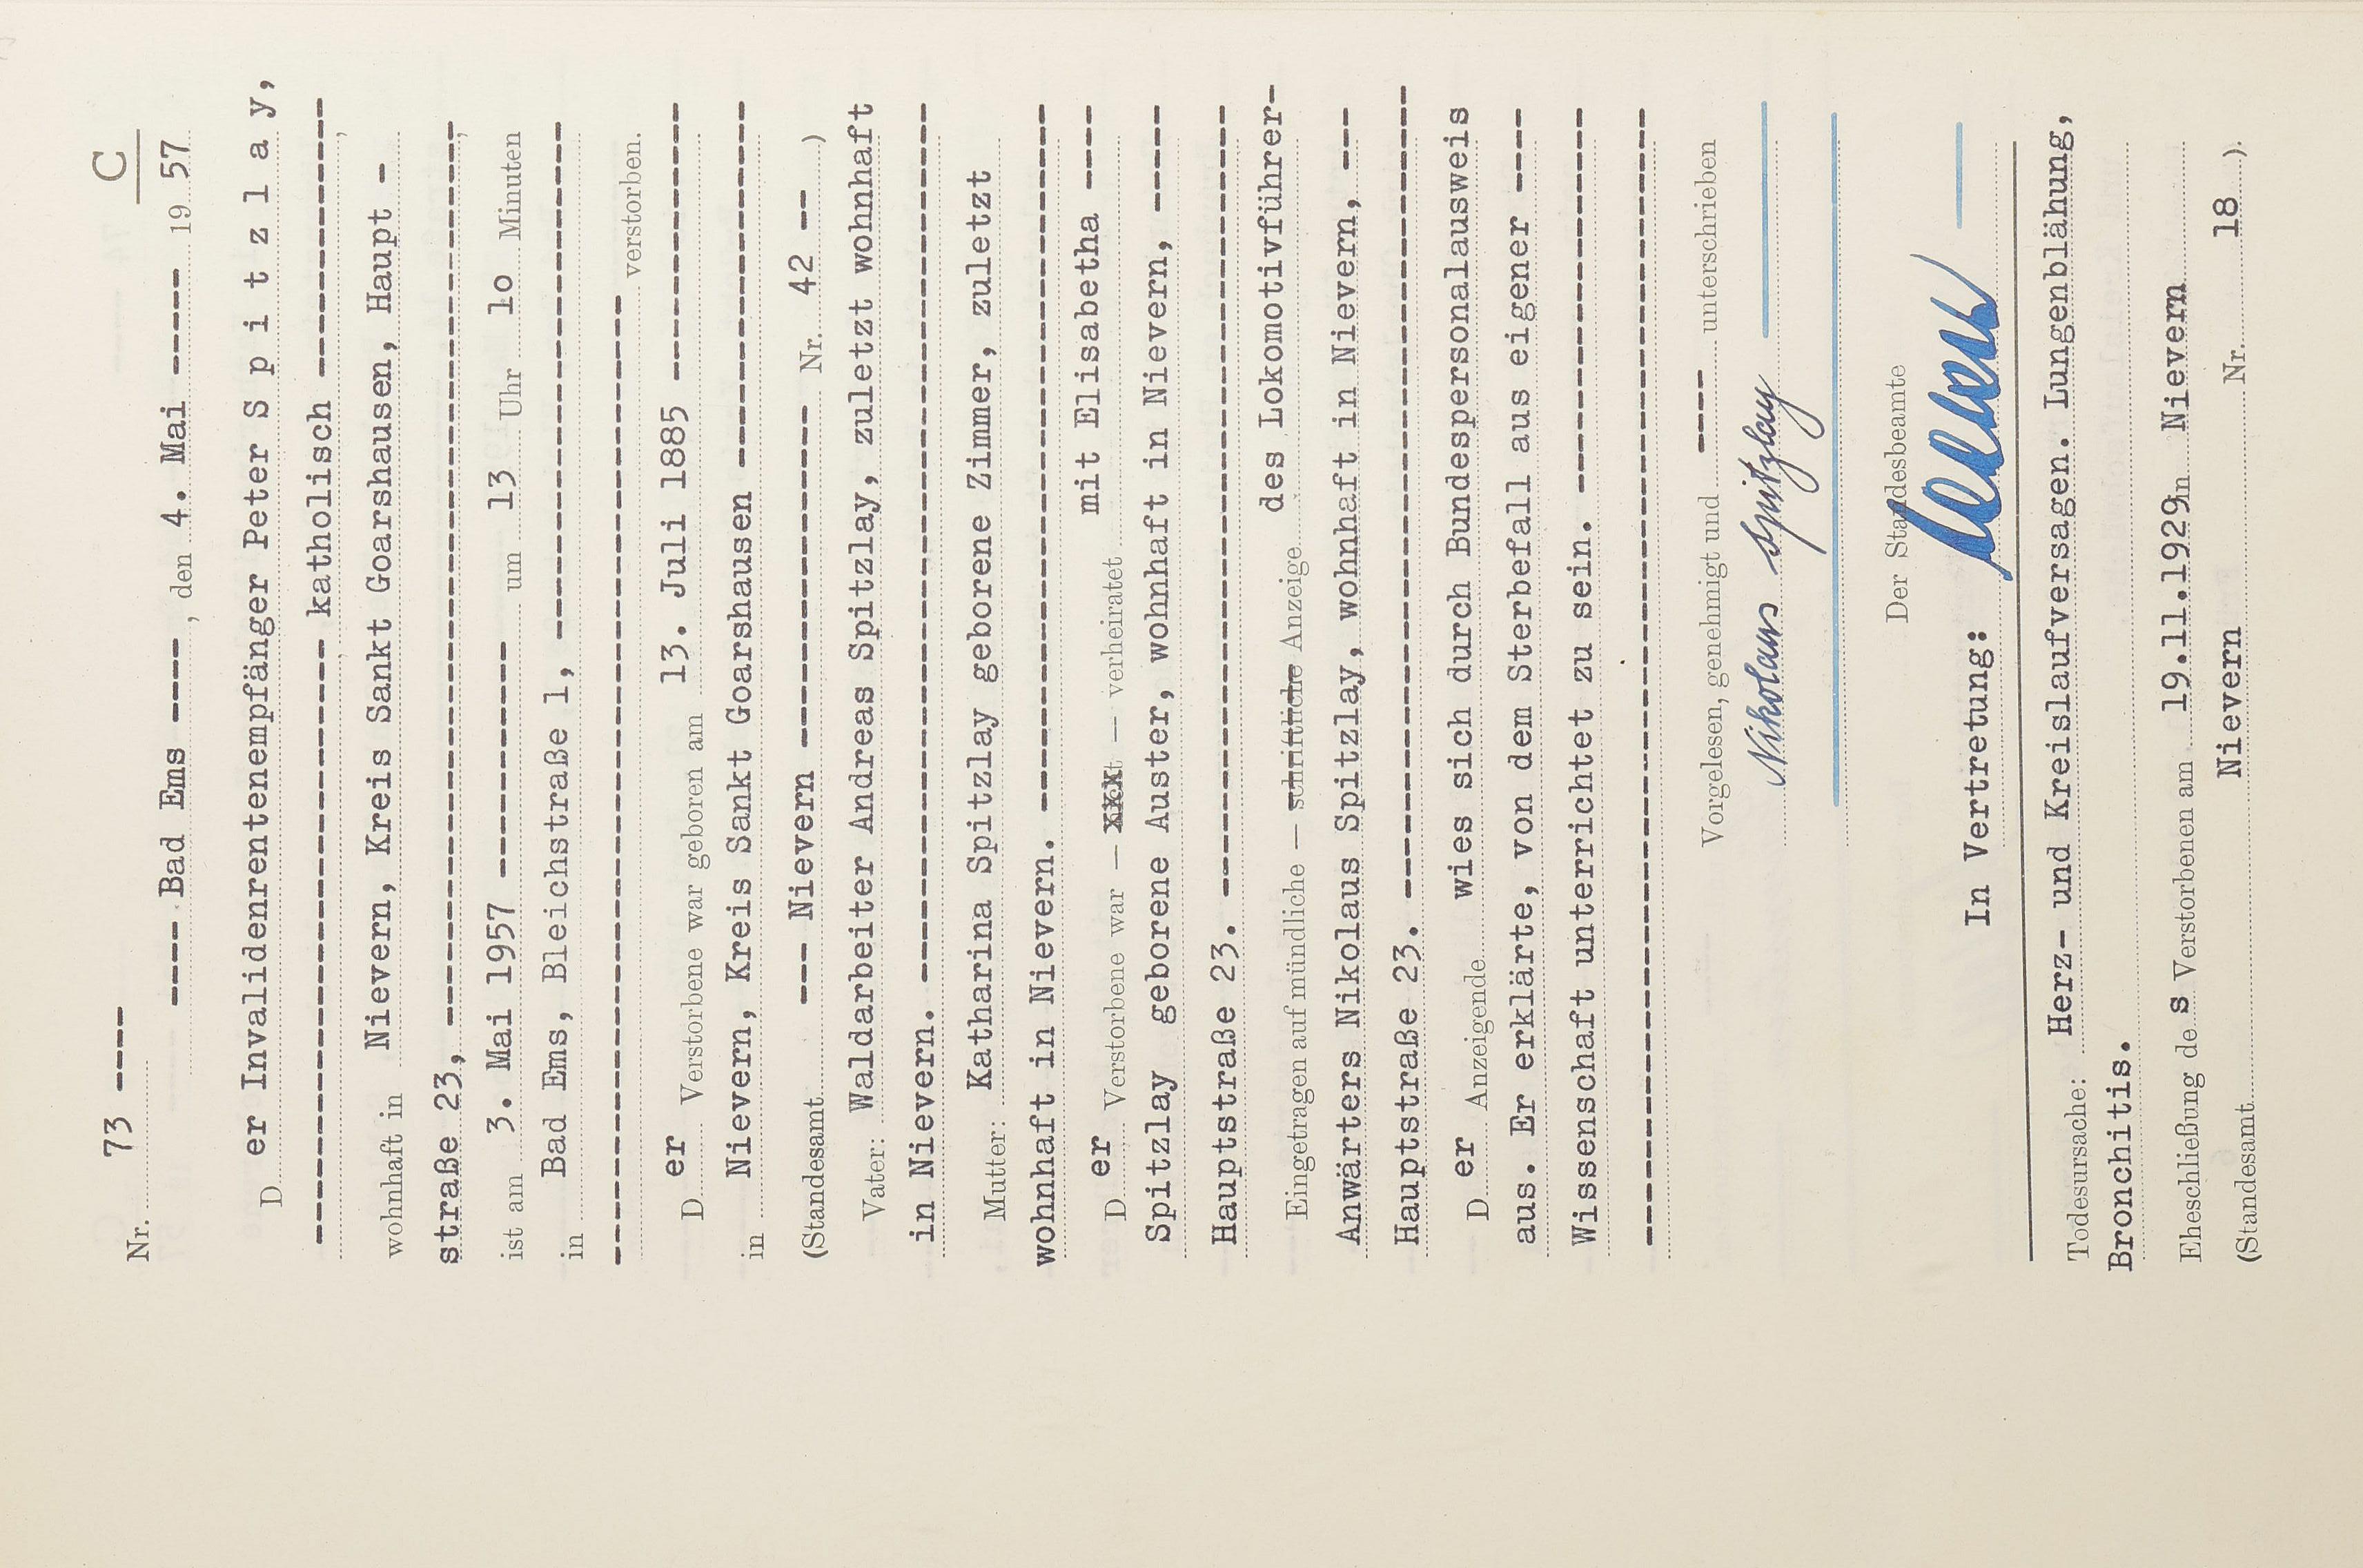 C
Nr. 73 ----
---- Bad Ems ----, den 4. Mai ----- 19 57
Der Invalidenrentenempfänger Peter S p i t z l a y,
---------------------- katholisch ---------------,
wohnhaft in Nievern, Kreis Sankt Goarshausen, Haupt -
straße 23, ------------------------------------------,
ist am 3. Mai 1957 ----------- um 13 Uhr 1o Minuten
in Bad Ems, Bleichstraße 1, ----------------------------
---------------------------------------- verstorben.
Der Verstorbene war geboren am 13. Juli 1885 ---------------
in Nievern, Kreis Sankt Goarshausen --------------------
(Standesamt --- Nievern ------------------ Nr. 42 --)
Vater: Waldarbeiter Andreas Spitzlay, zuletzt wohnhaft
in Nievern. ---------------------------------------------
Mutter: Katharina Spitzlay geborene Zimmer, zuletzt
wohnhaft in Nievern. -------------------------------------
Der Verstorbene war — xxxt — verheiratet mit Elisabetha ----
Spitzlay geborene Auster, wohnhaft in Nievern, -----
Hauptstraße 23. ------------------------------------------
Eingetragen auf mündliche — schriftliche Anzeige des Lokomotivführer-
Anwärters Nikolaus Spitzlay, wohnhaft in Nievern, ---
Hauptstraße 23. -------------------------------------------
Der Anzeigende wies sich durch Bundespersonalausweis
aus. Er erklärte, von dem Sterbefall aus eigener ----
Wissenschaft unterrichtet zu sein. ---------------------
--------------------------------------------------------------
Vorgelesen, genehmigt und ---- unterschrieben
Nikolaus Spitzlay
Der Standesbeamte
In Vertretung:
Todesursache: Herz- und Kreislaufversagen. Lungenblähung,
Bronchitis.
Eheschließung des Verstorbenen am 19.11.1929 in Nievern
(Standesamt Nievern Nr. 18 ).